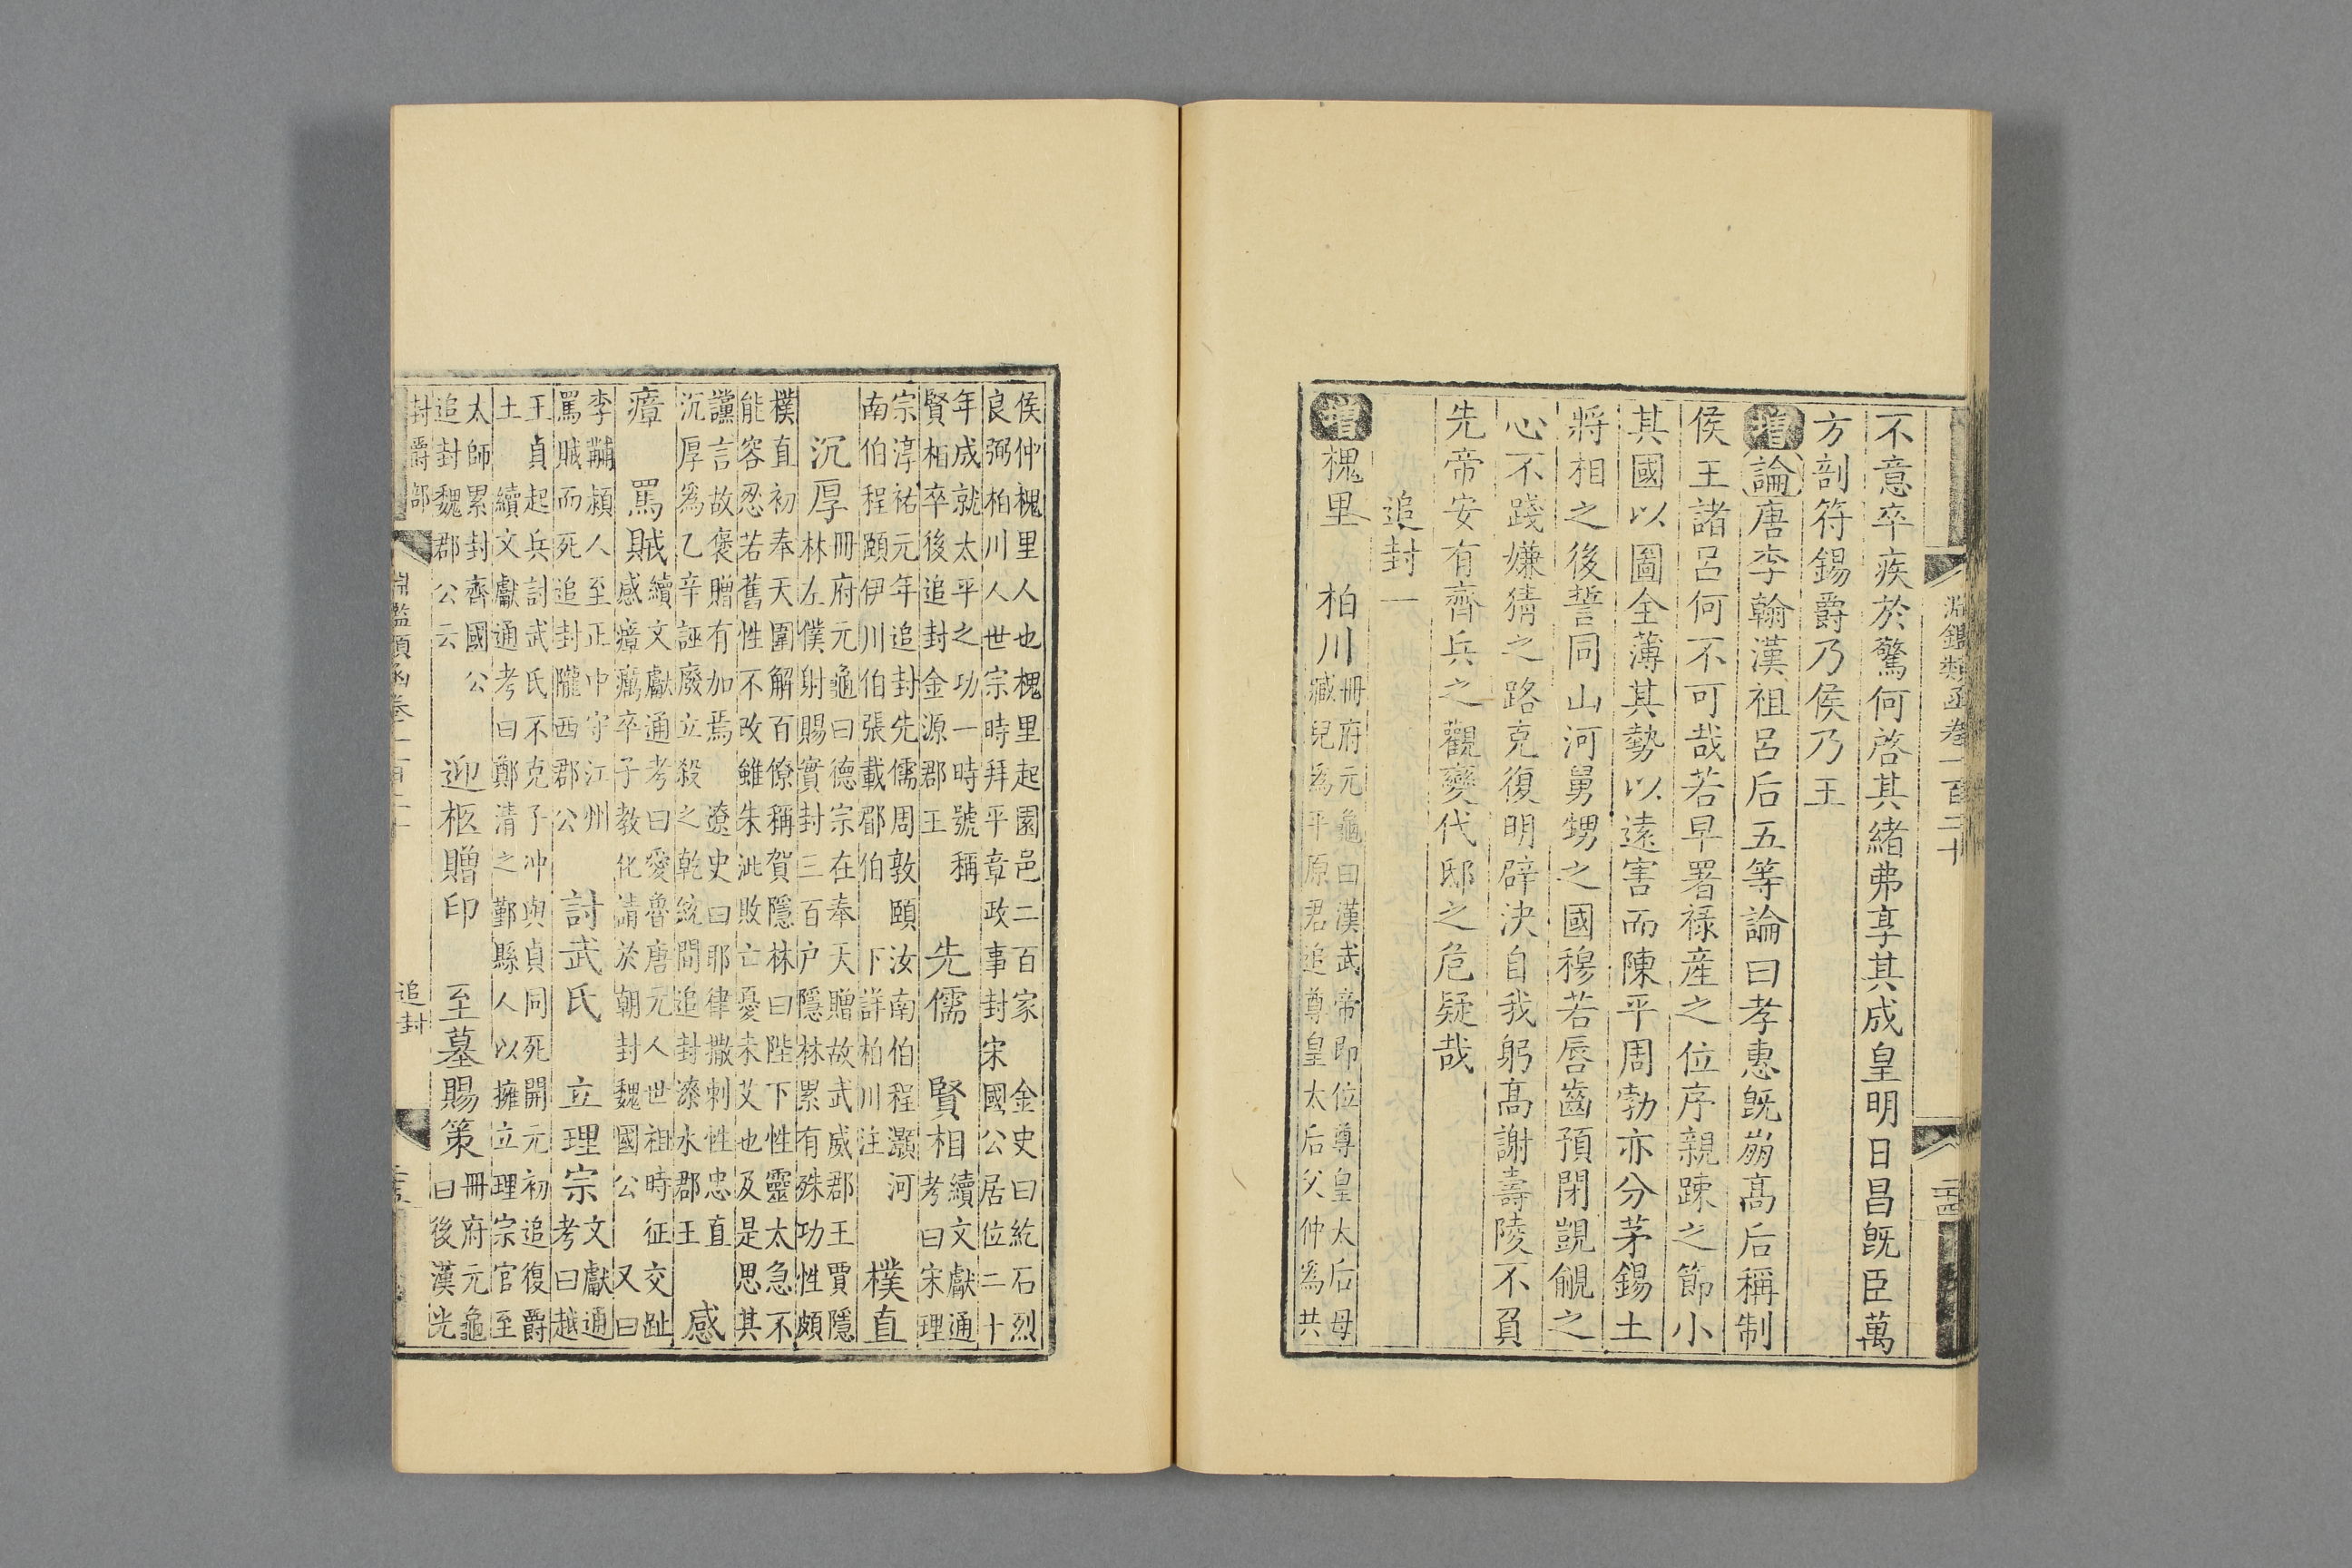 淵鑑類函卷一百二十
不意卒疾於驚何啓其緒弗享其成皇明日昌旣臣萬
方剖符錫爵乃侯乃王
增論唐李翰漢祖呂后五等論曰孝惠旣崩高后稱制
侯王諸呂何不可哉若早署祿産之位序親踈之節小
其國以圖全薄其勢以遠害而陳平周勃亦分茅錫土
將相之後誓同山河舅甥之國穆若唇齒預閉覬覦之
心不踐嫌猜之路克復明辟決自我躬高謝壽陵不負
先帝安有齊兵之觀變代邸之危疑哉
追封一
增槐里
柏川冊府元龜曰漢武帝即位尊皇太后母
臧兒爲平原君追尊皇太后父仲爲共
侯仲槐里人也槐里起園邑二百家
金史曰紇石烈
良弼柏川人世宗時拜平章政事封宋國公居位二十
年成就太平之功一時號稱
賢相卒後追封金源郡王
先儒
賢相續文獻通
考曰宋理
宗淳祐元年追封先儒周敦頤汝南伯程灝河
南伯程頤伊川伯張載郿伯
下詳柏川注
樸直
沉厚冊府元龜曰德宗在奉天贈故武威郡王賈隱
林左僕射賜實封三百户隱林累有殊功性頗
樸直初奉天圍解百僚稱賀隱林曰陛下性靈太急不
能容忍若舊性不改雖朱泚敗亡憂未艾也及是思其
讜言故褒贈有加焉
遼史曰耶律撒剌性忠直
沉厚爲乙辛誣廢立殺之乾統間追封漆水郡王
感
瘴
罵賊續文獻通考曰愛魯唐元人世祖時征交趾
感瘴癘卒子教化請於朝封魏國公
又曰
李黼潁人至正中守江州
罵賊而死追封隴西郡公
討武氏
立理宗文獻通
考曰越
王貞起兵討武氏不克子冲與貞同死開元初追復爵
土
續文獻通考曰鄭清之鄞縣人以擁立理宗官至
太師累封齊國公
追封魏郡公云
迎柩贈印
至墓賜策冊府元龜
曰後漢光
封爵部
追封